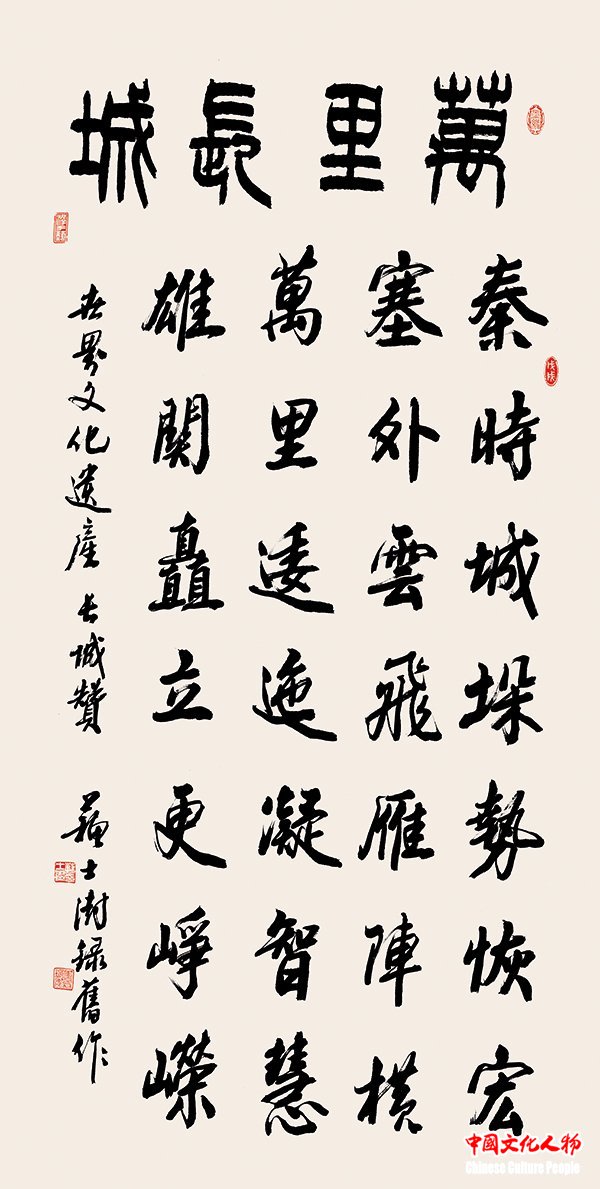 萬里長城
秦時城垛勢恢宏
戊戌
塞外雲飛雁陣橫
萬里逶迤凝智慧
雄關矗立更崢嶸
世界文化遺產長城贊 蘇士澍録舊作
中國文化人物
Chinese Culture People